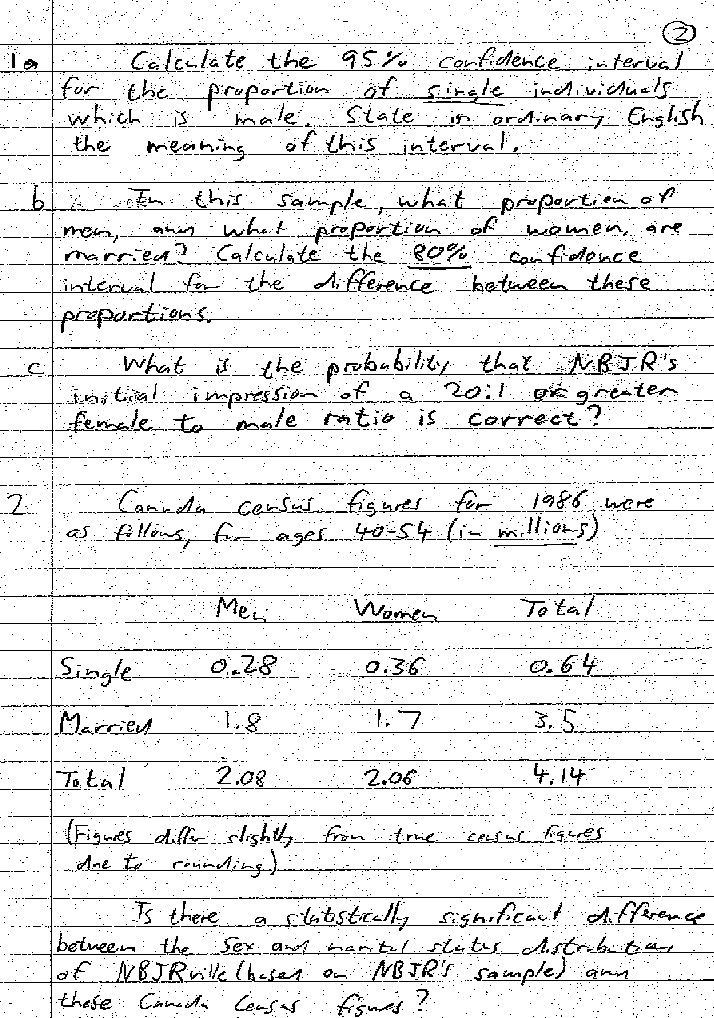 2
1a Calculate the 95% confidence interval
for the proportion of single individuals
which is male. State in ordinary English
the meaning of this interval.
b In this sample, what proportion of
men, and what proportion of women, are
married? Calculate the 80% confidence
interval for the difference between these
proportions.
c What is the probability that NBJR's
initial impression of a 20:1 or greater
female to male ratio is correct?
2 Canada census figures for 1986 were
as follows, for ages 40-54 (in millions)
Men Women Total
Single 0.28 0.36 0.64
Married 1.8 1.7 3.5
Total 2.08 2.06 4.14
(Figures differ slightly from true census figures
due to rounding)
Is there a statistically significant difference
between the sex and marital status distribution
of NBJRville (based on NBJR's sample) and
these Canada Census figures?